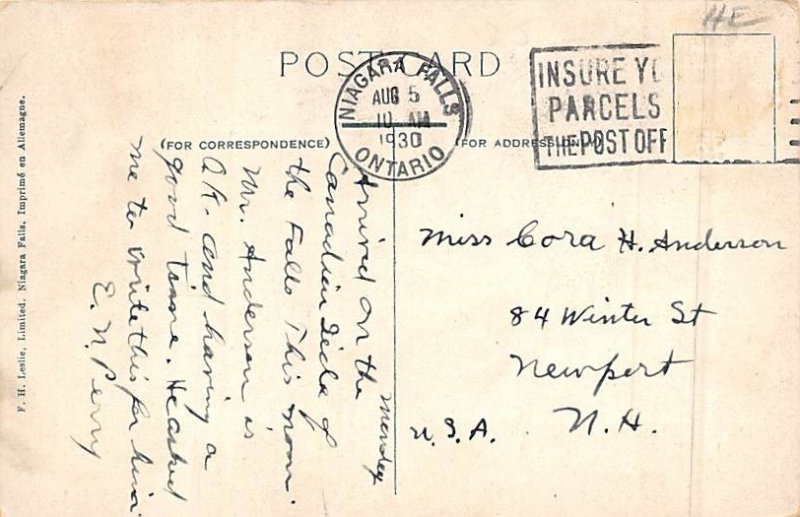 HE
POST CARD
NIAGARA FALLS
AUG 5
10 AM
1930
ONTARIO
INSURE YO
PARCELS
THE POST OFF
(FOR CORRESPONDENCE)
(FOR ADDRESS
Monday
Arrived on the
Canadian Side of
the Falls This noon.
Mr. Anderson is
O.K. and having a
good time. He asked
me to write this for him.
E. N. Perry
Miss Cora H. Anderson
84 Winter St
Newport
N.H.
U.S.A.
F. H. Leslie, Limited, Niagara Falls. Imprimé en Allemagne.